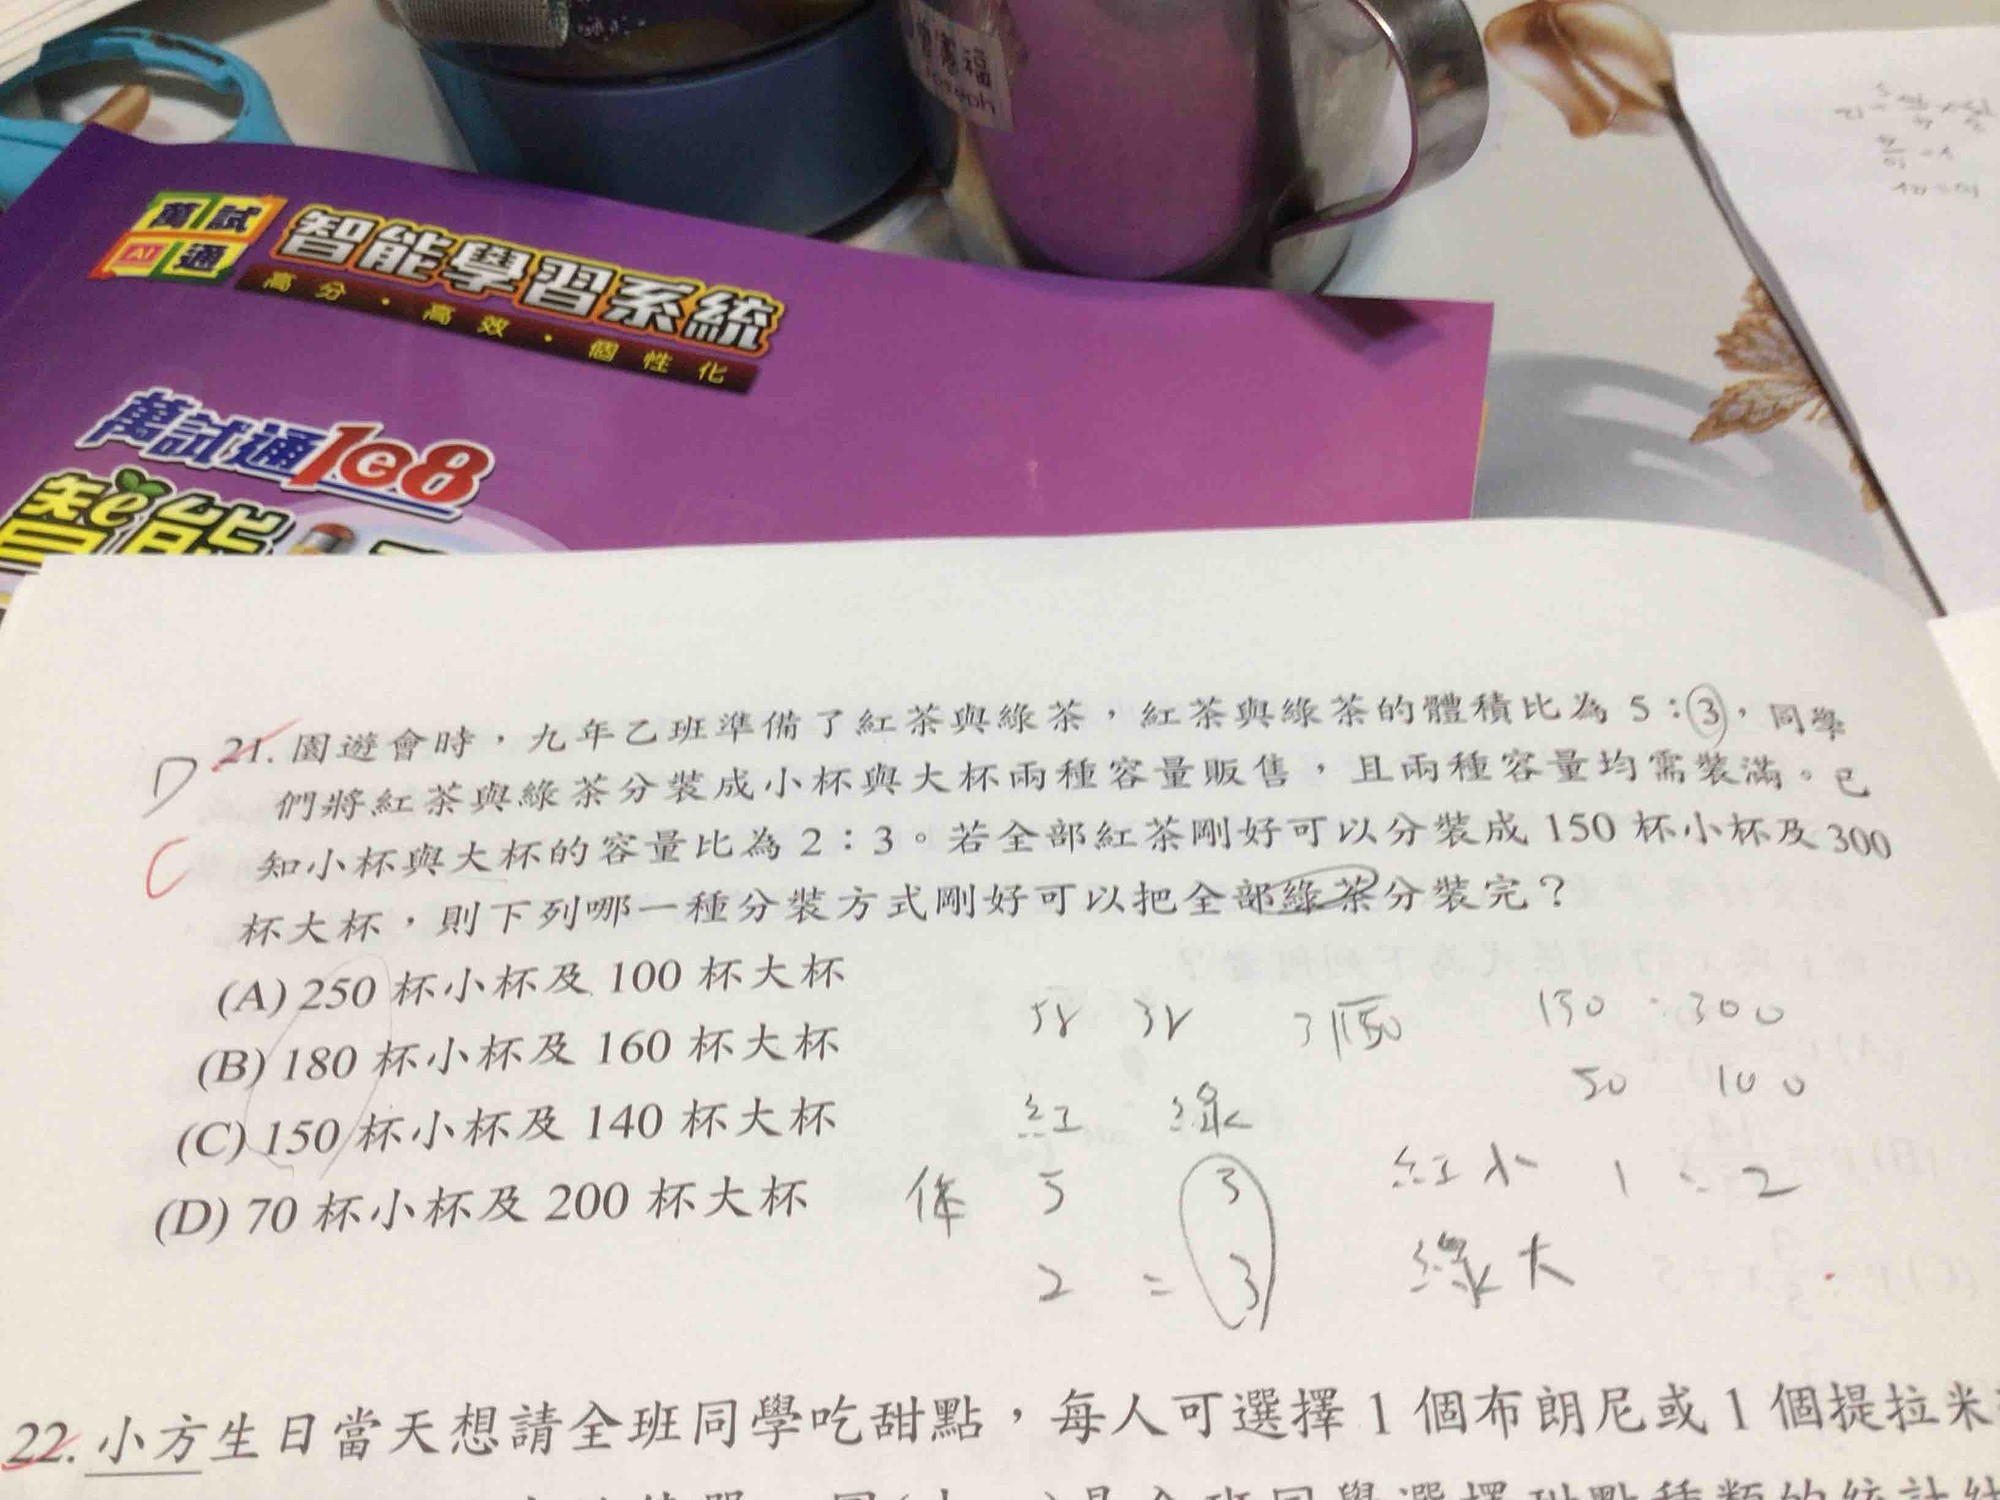 萬試
AI通
智能學習系統
高分・高效・個性化
萬試通1e8
智能
D
21. 園遊會時，九年乙班準備了紅茶與綠茶，紅茶與綠茶的體積比為 5：3，同學
們將紅茶與綠茶分裝成小杯與大杯兩種容量販售，且兩種容量均需裝滿。已
C
知小杯與大杯的容量比為 2：3。若全部紅茶剛好可以分裝成 150 杯小杯及 300
杯大杯，則下列哪一種分裝方式剛好可以把全部綠茶分裝完？
(A) 250 杯小杯及 100 杯大杯
(B) 180 杯小杯及 160 杯大杯
(C) 150 杯小杯及 140 杯大杯
(D) 70 杯小杯及 200 杯大杯
5r 3r 3 150 150 : 300
50 100
紅 綠
5 3 紅小 1 : 2
2 = 3 綠大
22. 小方生日當天想請全班同學吃甜點，每人可選擇 1 個布朗尼或 1 個提拉米